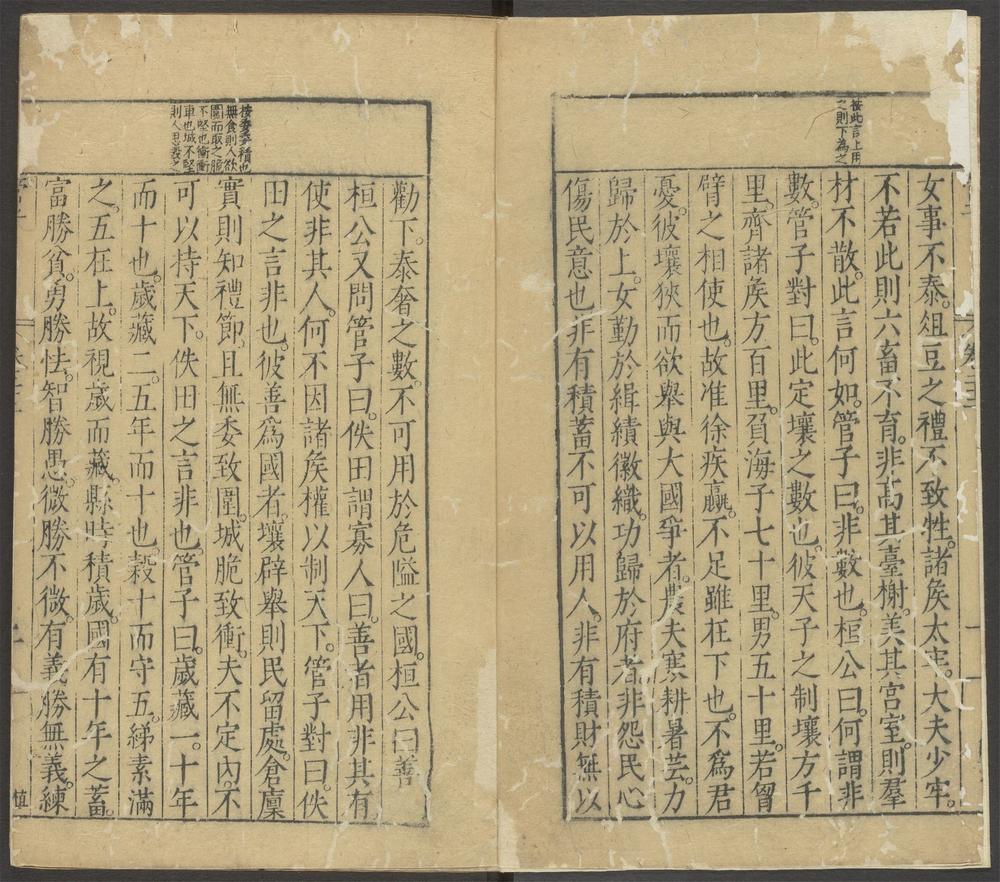 按此言上用
之則下為之
女事不泰。俎豆之禮不致牲。諸矦太牢。大夫少牢。
不若此則六畜不育。非高其臺榭。美其宫室。則羣
材不散。此言何如。管子曰。非數也。桓公曰。何謂非
數。管子對曰。此定壤之數也。彼天子之制壤方千
里。齊諸矦方百里。負海子七十里。男五十里。若胷
臂之相使也。故准徐疾羸。不足雖在下也。不為君
憂。彼壤狹而欲舉與大國爭者。農夫寒耕暑芸。力
歸於上。女勤於緝績徽織。功歸於府者。非怨民心
傷民意也。非有積蓄不可以用人。非有積財無以
按委委積也
無食則人欲
圍而取之脆
不堅也衝衝
車也城不堅
則人思毀之
勸下。泰奢之數。不可用於危隘之國。桓公曰。善
桓公又問管子曰。佚田謂寡人曰。善者用非其有
使非其人。何不因諸矦權以制天下。管子對曰。佚
田之言非也。彼善爲國者。壤辟舉則民留處。倉廩
實則知禮節。且無委致圍。城脆致衝。夫不定內。不
可以持天下。佚田之言非也。管子曰。歲藏一。十年
而十也。歲藏二。五年而十也。穀十而守五。綈素滿
之。五在上。故視歲而藏。縣時積歲。國有十年之蓄。
富勝貧。勇勝怯。智勝愚。微勝不微。有義勝無義。練